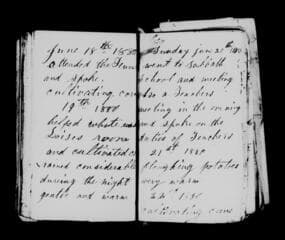 June 18th 1880
attended the
and spoke.
cultivating corn
19th 1880
helped
room
and cultivated
rained considerable
during the night
and warm
Sunday June 20th
went to Sabbath
School and meeting
also a Teachers
meeting in the evening
and spoke on the
duties of Teachers
21st 1880
Ploughing potatoes
very warm
22
cultivating corn